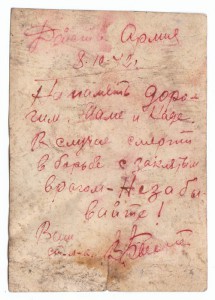 Действ. Армия
3.10.42г
На память доро-
гим, Маме и Наде.
В случае смерти
в борьбе с заклятым
врагом – Не забы
вайте!
Ваш